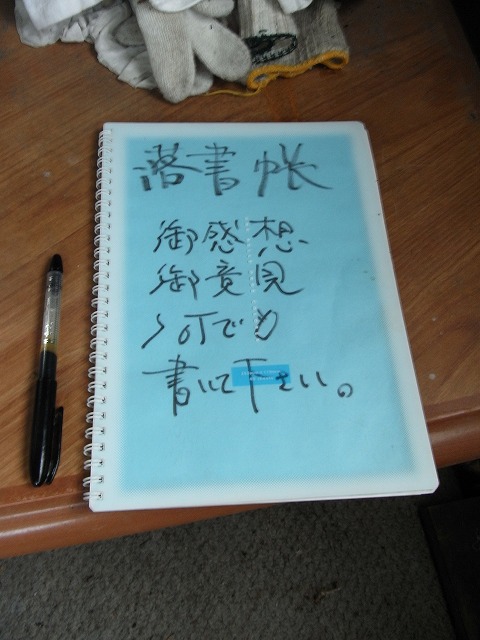 落書帳
御感想
御意見
何でも
書いて下さい。